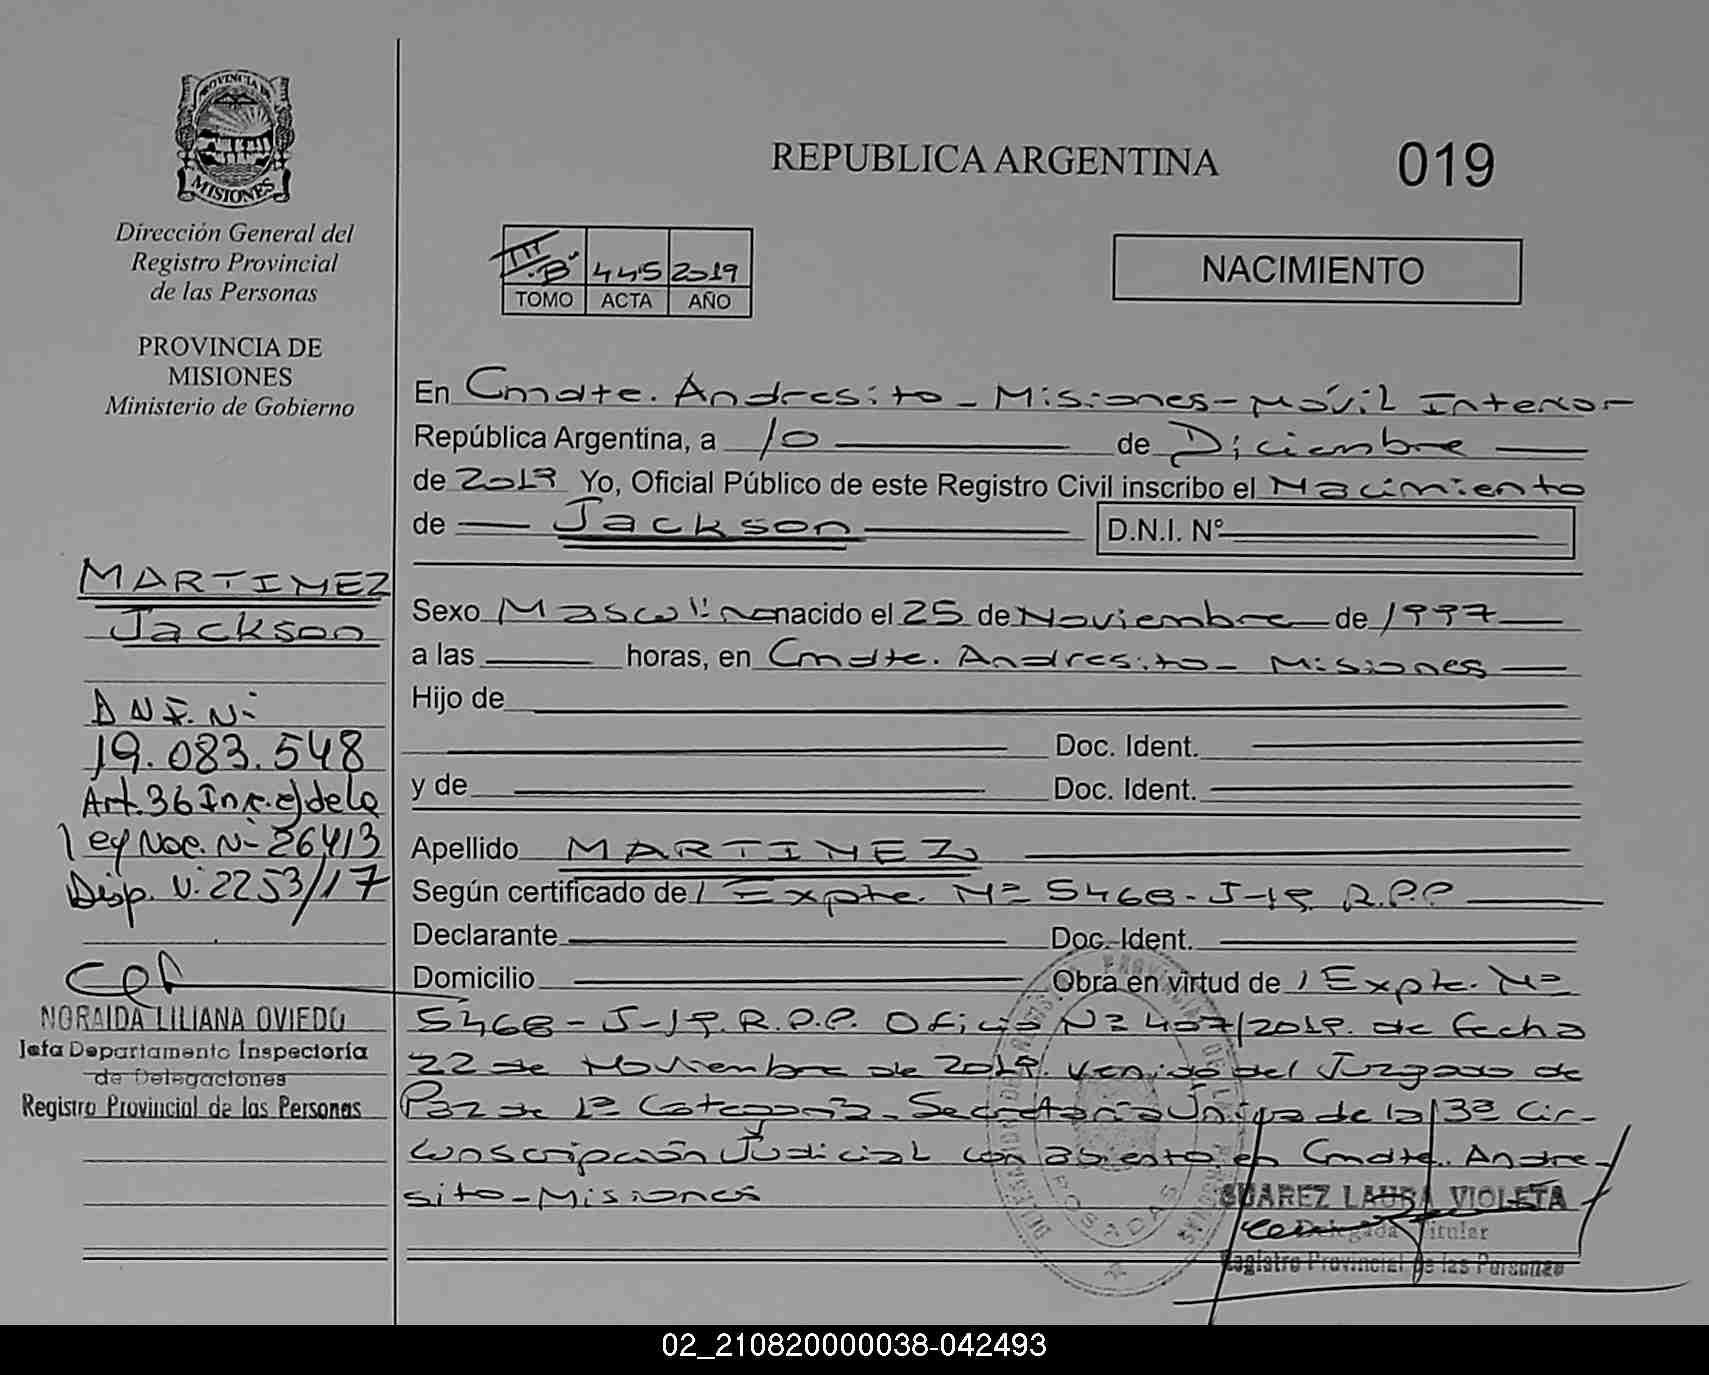 PROVINCIA DE
MISIONES
Dirección General del
Registro Provincial
de las Personas
PROVINCIA DE
MISIONES
Ministerio de Gobierno
MARTINEZ
Jackson
D.N.I. Nº
19.083.548
Art. 36 Inc. c) de la
Ley Nac. Nº 26413
Disp. Nº 2253/17
NORAIDA LILIANA OVIEDO
Jefa Departamento Inspectoría
de Delegaciones
Registro Provincial de las Personas
REPUBLICA ARGENTINA 019
III "B" 445 2019
TOMO ACTA AÑO
NACIMIENTO
En Cmdte. Andresito - Misiones - Móvil Interior
República Argentina, a 10 de Diciembre
de 2019 Yo, Oficial Público de este Registro Civil inscribo el Nacimiento
de Jackson D.N.I. Nº
Sexo Masculino nacido el 25 de Noviembre de 1997
a las horas, en Cmdte. Andresito - Misiones
Hijo de
Doc. Ident.
y de Doc. Ident.
Apellido MARTINEZ
Según certificado de / Expte. Nº 5468-J-19. R.P.P
Declarante Doc. Ident.
Domicilio Obra en virtud de / Expte. Nº
5468-J-19. R.P.P. Oficio Nº 407/2019. de fecha
22 de Noviembre de 2019. venido del Juzgado de
Paz de 1ª Categoría - Secretaría Única de la 3ª Cir-
cunscripción Judicial con asiento en Cmdte. Andre-
sito - Misiones
POSADAS
SUAREZ LAURA VIOLETA
Delegada Titular
Registro Provincial de las Personas
02_210820000038-042493